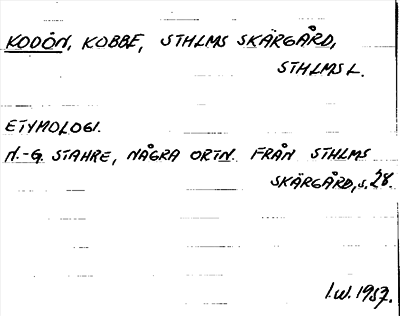 KODÖN, KOBBE, STHLMS SKÄRGÅRD,
STHLMS L.
ETYMOLOGI.
N.-G. STAHRE, NÅGRA ORTN. FRÅN STHLMS
SKÄRGÅRD, s. 28.
I.W. 1957.